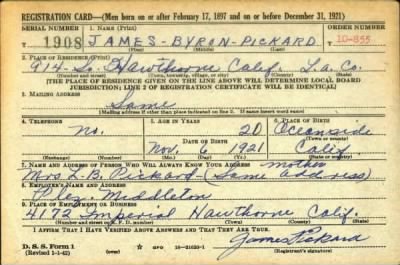 REGISTRATION CARD—(Men born on or after February 17, 1897 and on or before December 31, 1921)
SERIAL NUMBER 1. NAME (Print) ORDER NUMBER
1908 JAMES-BYRON-PICKARD 10-855
2. PLACE OF RESIDENCE (Print)
914-So. Hawthorne Calif. L.a. Co.
(Number and street) (Town, township, village, or city) (County) (State)
[THE PLACE OF RESIDENCE GIVEN ON THE LINE ABOVE WILL DETERMINE LOCAL BOARD
JURISDICTION; LINE 2 OF REGISTRATION CERTIFICATE WILL BE IDENTICAL]
3. MAILING ADDRESS
Same
(Mailing address if other than place indicated on line 2. If same insert word same)
4. TELEPHONE 5. AGE IN YEARS 6. PLACE OF BIRTH
no. 20 Oceanside
DATE OF BIRTH (Town or county)
Nov. 6 1921 Calif.
(Exchange) (Number) (Mo.) (Day) (Yr.) (State or country)
7. NAME AND ADDRESS OF PERSON WHO WILL ALWAYS KNOW YOUR ADDRESS mother
Mrs L.B. Pickard-(Same address)
8. EMPLOYER'S NAME AND ADDRESS
Middleton
9. PLACE OF EMPLOYMENT OR BUSINESS
4172 Imperial Hawthorne Calif.
(Number and street or R. F. D. number) (Town) (County) (State)
I AFFIRM THAT I HAVE VERIFIED ABOVE ANSWERS AND THAT THEY ARE TRUE.
D. S. S. Form 1 GPO 16-21630-1 James Pickard
(Revised 1-1-42) (Registrant's signature)